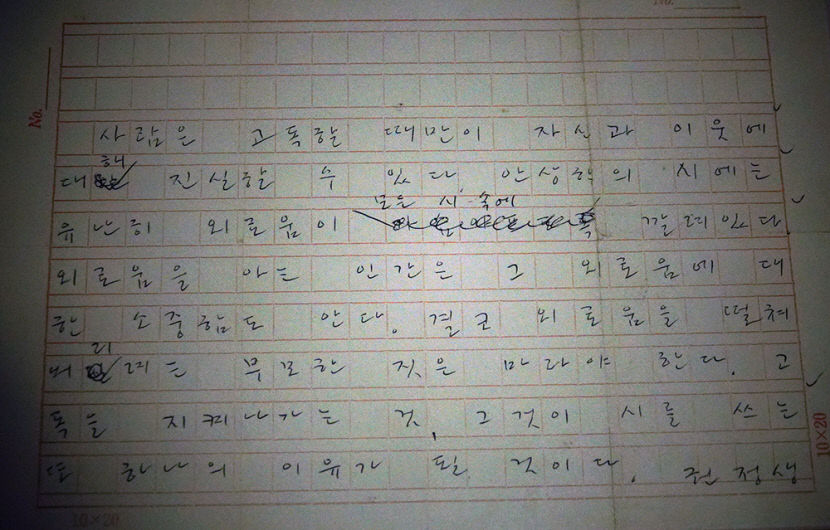 No.
No.
사람은 고독할 때만이 자신과 이웃에
대해 진실할 수 있다. 안상학의 시에는
유난히 외로움이 모든 시 속에 깔려있다
외로움을 아는 인간은 그 외로움에 대
한 소중함도 안다. 결코 외로움을 떨쳐
버리려는 무모한 짓은 말아야 한다. 고
독을 지켜나가는 것, 그것이 시를 쓰는
또 하나의 이유가 될 것이다. 권정생
10×20
10×20